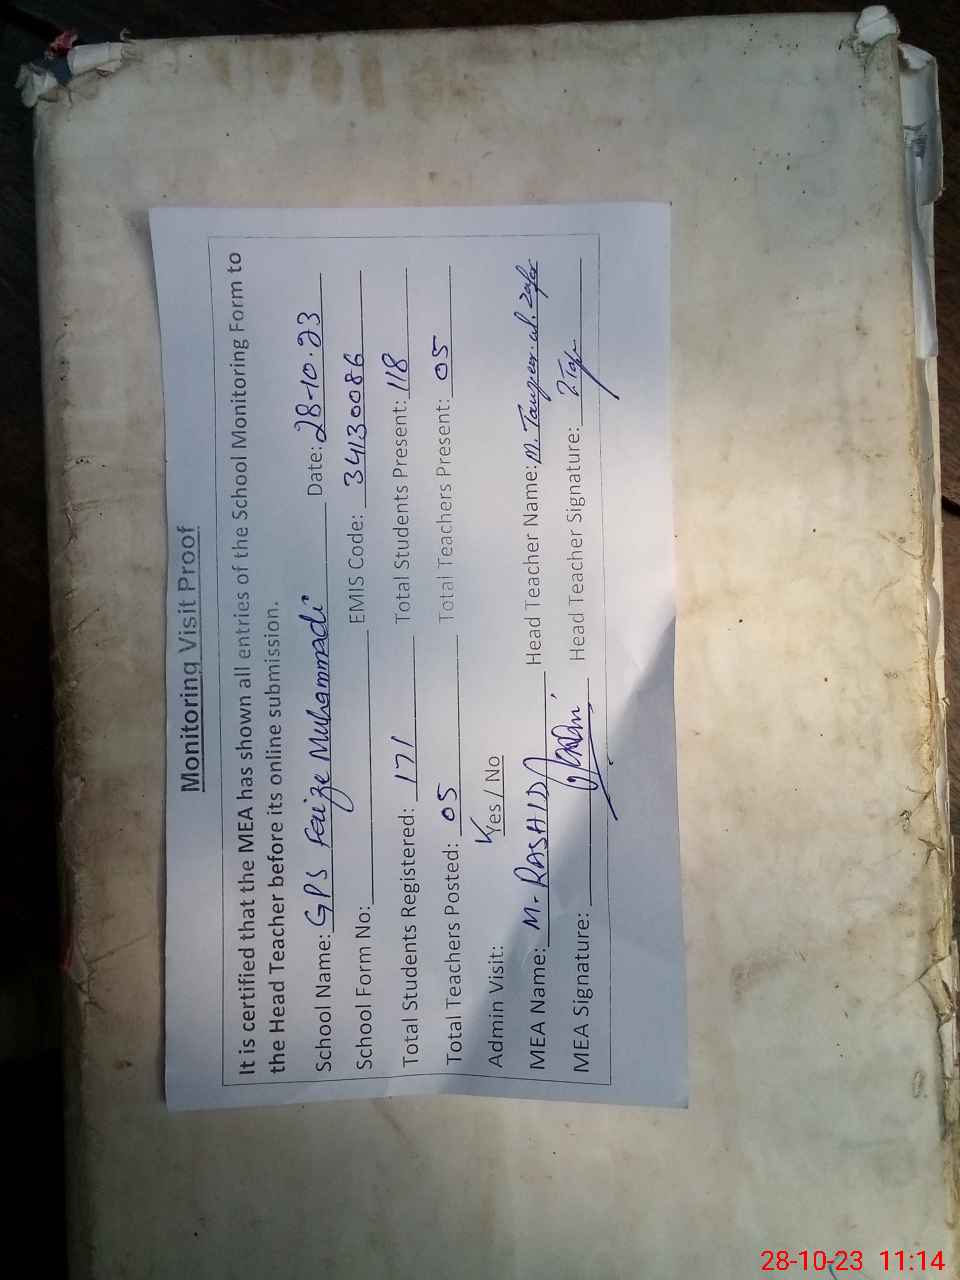 Monitoring Visit Proof
It is certified that the MEA has shown all entries of the School Monitoring Form to
the Head Teacher before its online submission.
School Name: GPS Faize Muhammadi Date: 28-10-23
School Form No: EMIS Code: 34130086
Total Students Registered: 171 Total Students Present: 118
Total Teachers Posted: 05 Total Teachers Present: 05
Admin Visit: Yes / No
MEA Name: M. RASHID Head Teacher Name: M.
MEA Signature: Head Teacher Signature:
28-10-23 11:14